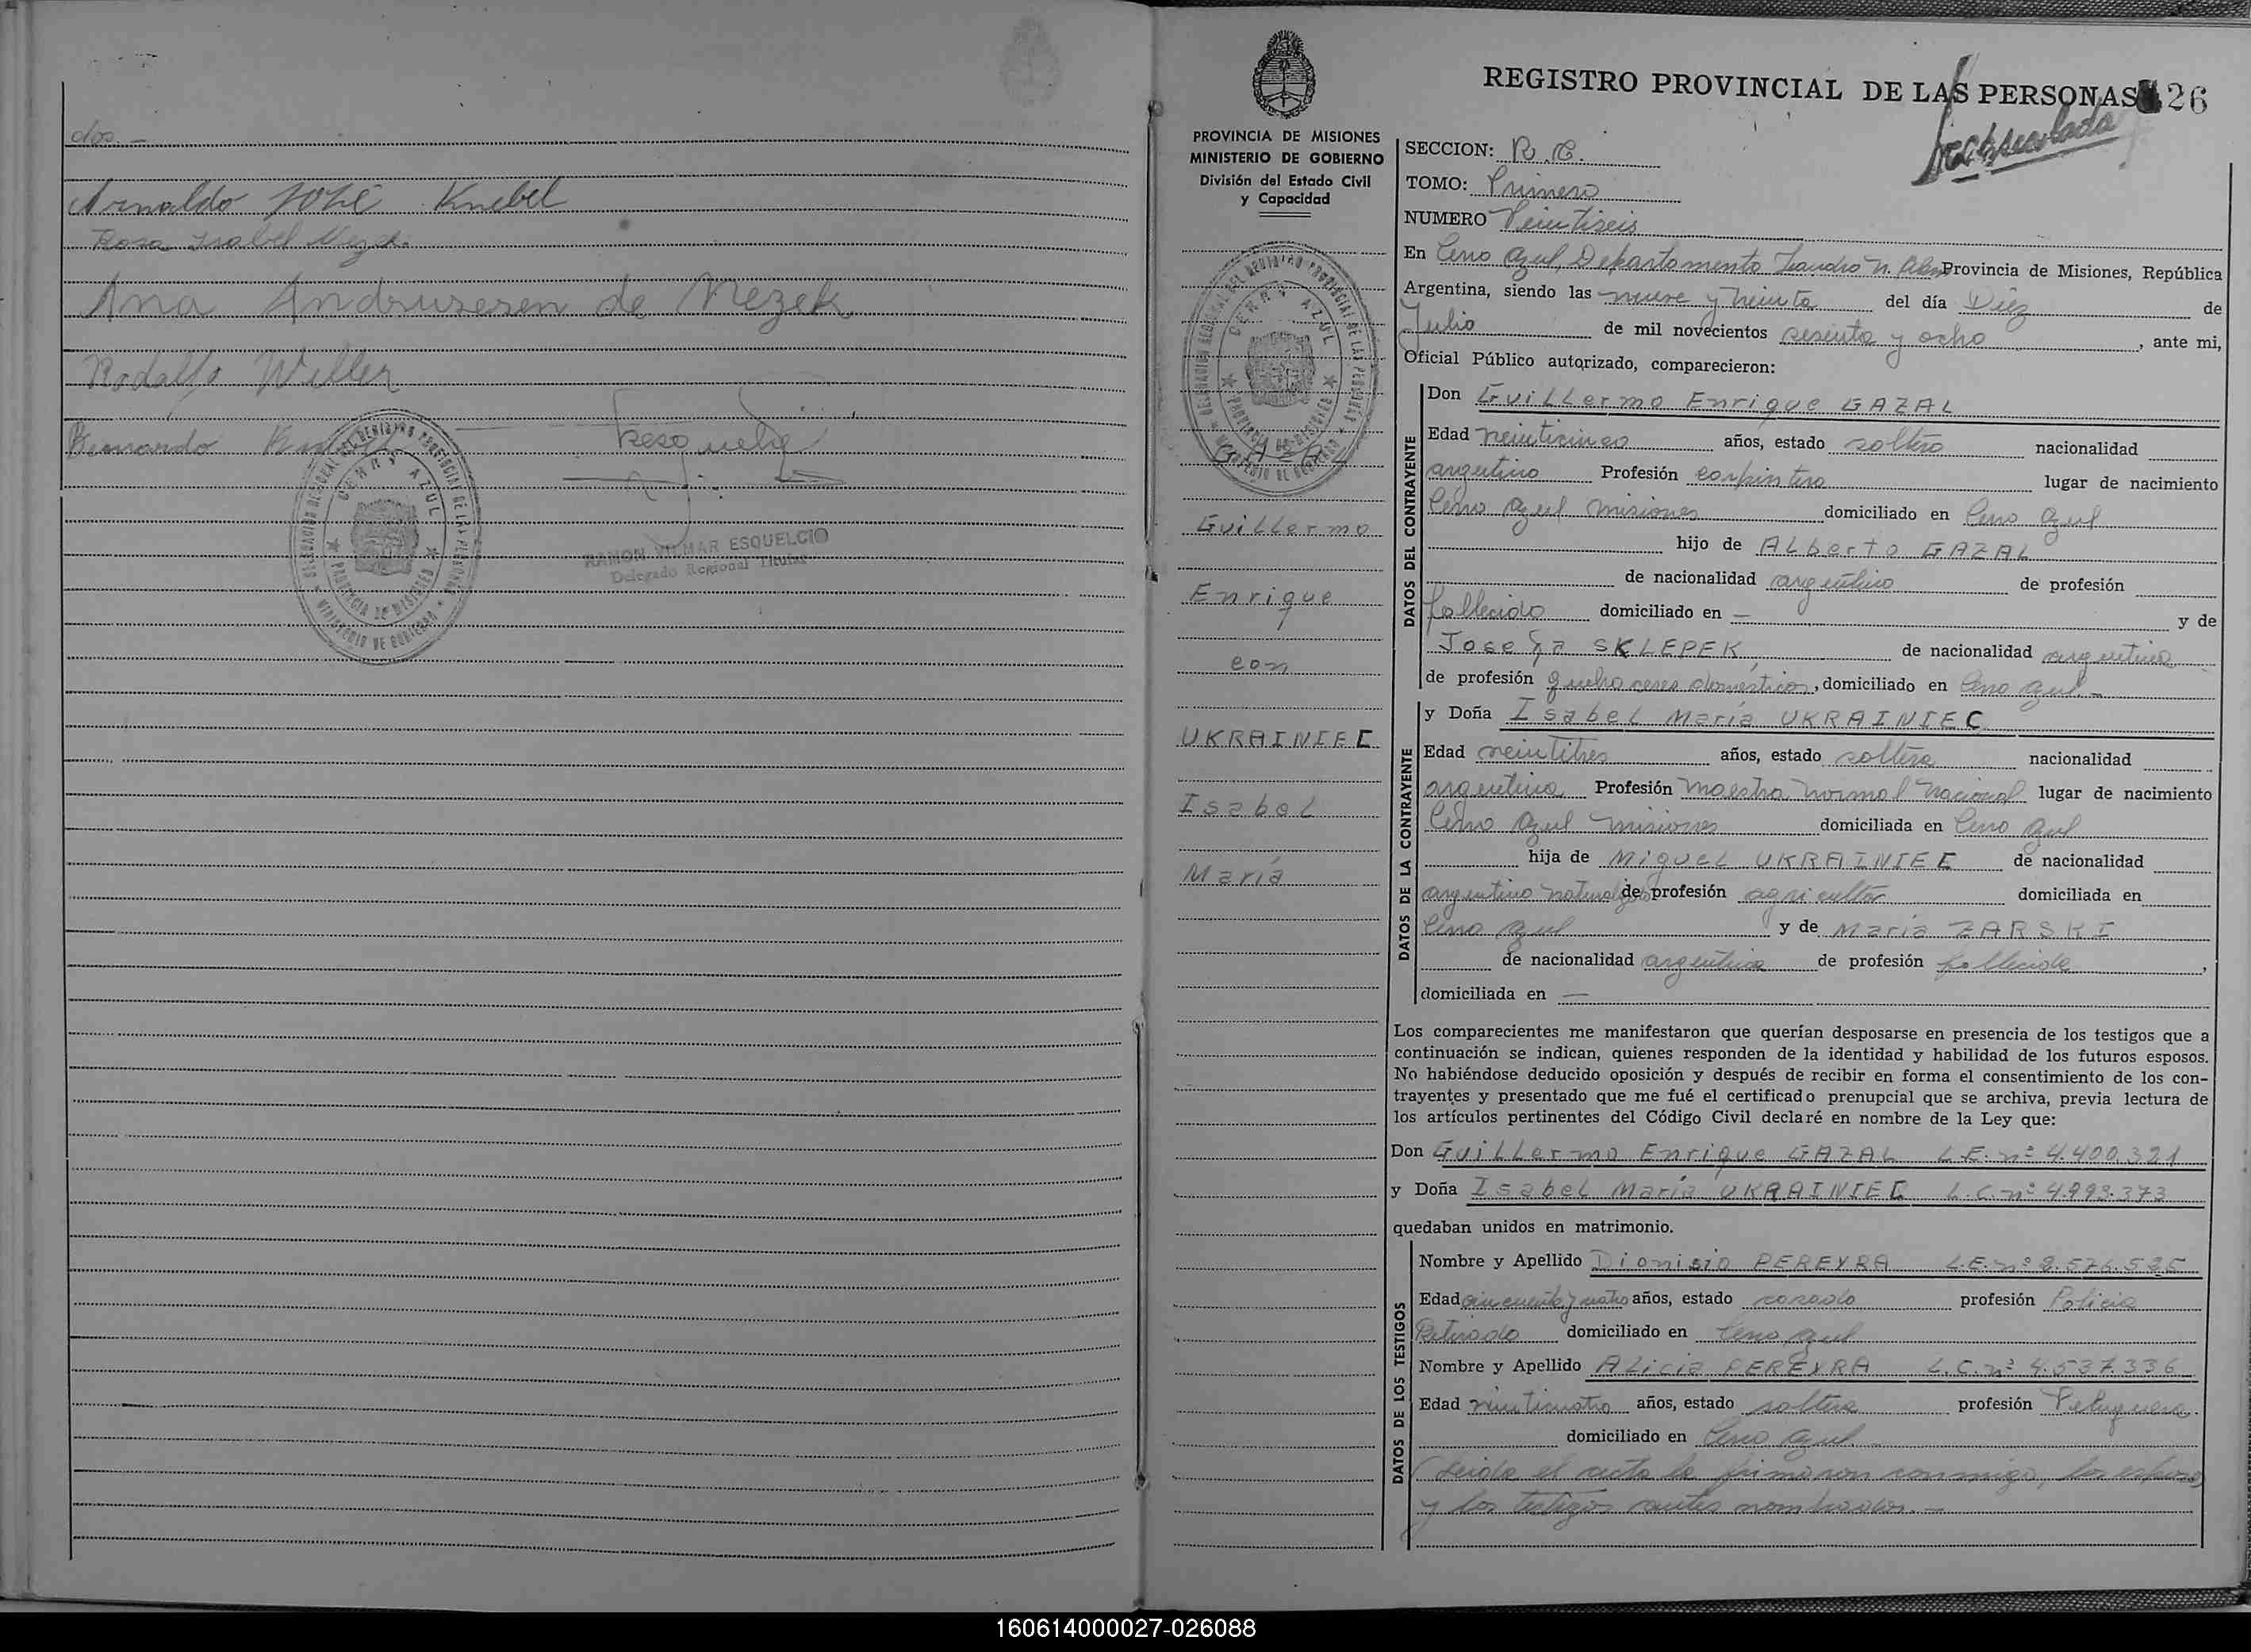 dos.-
Arnaldo José Knebel
Rosa Isabel Nezek.
Ana Andruseren de Nezek
Rodolfo Weller
Bernardo
RAMON VILMAR ESQUELCIO
Delegado Regional Titular
DELEGACION REGIONAL DEL REGISTRO PROVINCIAL DE LAS PERSONAS
CERRO AZUL
PROVINCIA DE MISIONES
MINISTERIO DE GOBIERNO
PROVINCIA DE MISIONES
MINISTERIO DE GOBIERNO
División del Estado Civil
y Capacidad
DELEGACION REGIONAL DEL REGISTRO PROVINCIAL DE LAS PERSONAS
CERRO AZUL
PROVINCIA DE MISIONES
MINISTERIO DE GOBIERNO
GAZAL
Guillermo
Enrique
con
UKRAINIEC
Isabel
María
REGISTRO PROVINCIAL DE LAS PERSONAS 26
SECCION: R. C.
TOMO: Primero
NUMERO Veintiseis
En Cerro Azul, Departamento Leandro N. Alem Provincia de Misiones, República
Argentina, siendo las nueve y treinta del día Diez de
Julio de mil novecientos sesenta y ocho, ante mi,
Oficial Público autorizado, comparecieron:
DATOS DEL CONTRAYENTE
Don Guillermo Enrique GAZAL
Edad veinticinco años, estado soltero nacionalidad
argentino Profesión carpintero lugar de nacimiento
Cerro Azul Misiones domiciliado en Cerro Azul
hijo de Alberto GAZAL
de nacionalidad argentino de profesión
fallecido domiciliado en — y de
Josefa SKLEPEK, de nacionalidad argentina
de profesión quehaceres domésticos, domiciliado en Cerro Azul.-
DATOS DE LA CONTRAYENTE
y Doña Isabel María UKRAINIEC
Edad veintitres años, estado soltera nacionalidad
argentina Profesión Maestra Normal Nacional lugar de nacimiento
Cerro Azul Misiones domiciliada en Cerro Azul
hija de Miguel UKRAINIEC de nacionalidad
argentino naturalizado de profesión agricultor domiciliada en
Cerro Azul y de María ZARSKI
de nacionalidad argentina de profesión fallecida,
domiciliada en —
Los comparecientes me manifestaron que querían desposarse en presencia de los testigos que a
continuación se indican, quienes responden de la identidad y habilidad de los futuros esposos.
No habiéndose deducido oposición y después de recibir en forma el consentimiento de los con-
trayentes y presentado que me fué el certificado prenupcial que se archiva, previa lectura de
los artículos pertinentes del Código Civil declaré en nombre de la Ley que:
Don Guillermo Enrique GAZAL L.E. nº 4.400.321
y Doña Isabel María UKRAINIEC L.C. nº 4.993.373
quedaban unidos en matrimonio.
DATOS DE LOS TESTIGOS
Nombre y Apellido Dionisio PEREYRA L.E. nº
Edad cincuenta y cuatro años, estado casado profesión Policia
Retirado domiciliado en Cerro Azul
Nombre y Apellido Alicia PEREYRA L.C. nº 4.537.336
Edad veinticuatro años, estado soltera profesión Peluquera
domiciliado en Cerro Azul.-
Leida el acta la firmaron conmigo, los esposos
y los testigos antes nombrados.-
160614000027-026088